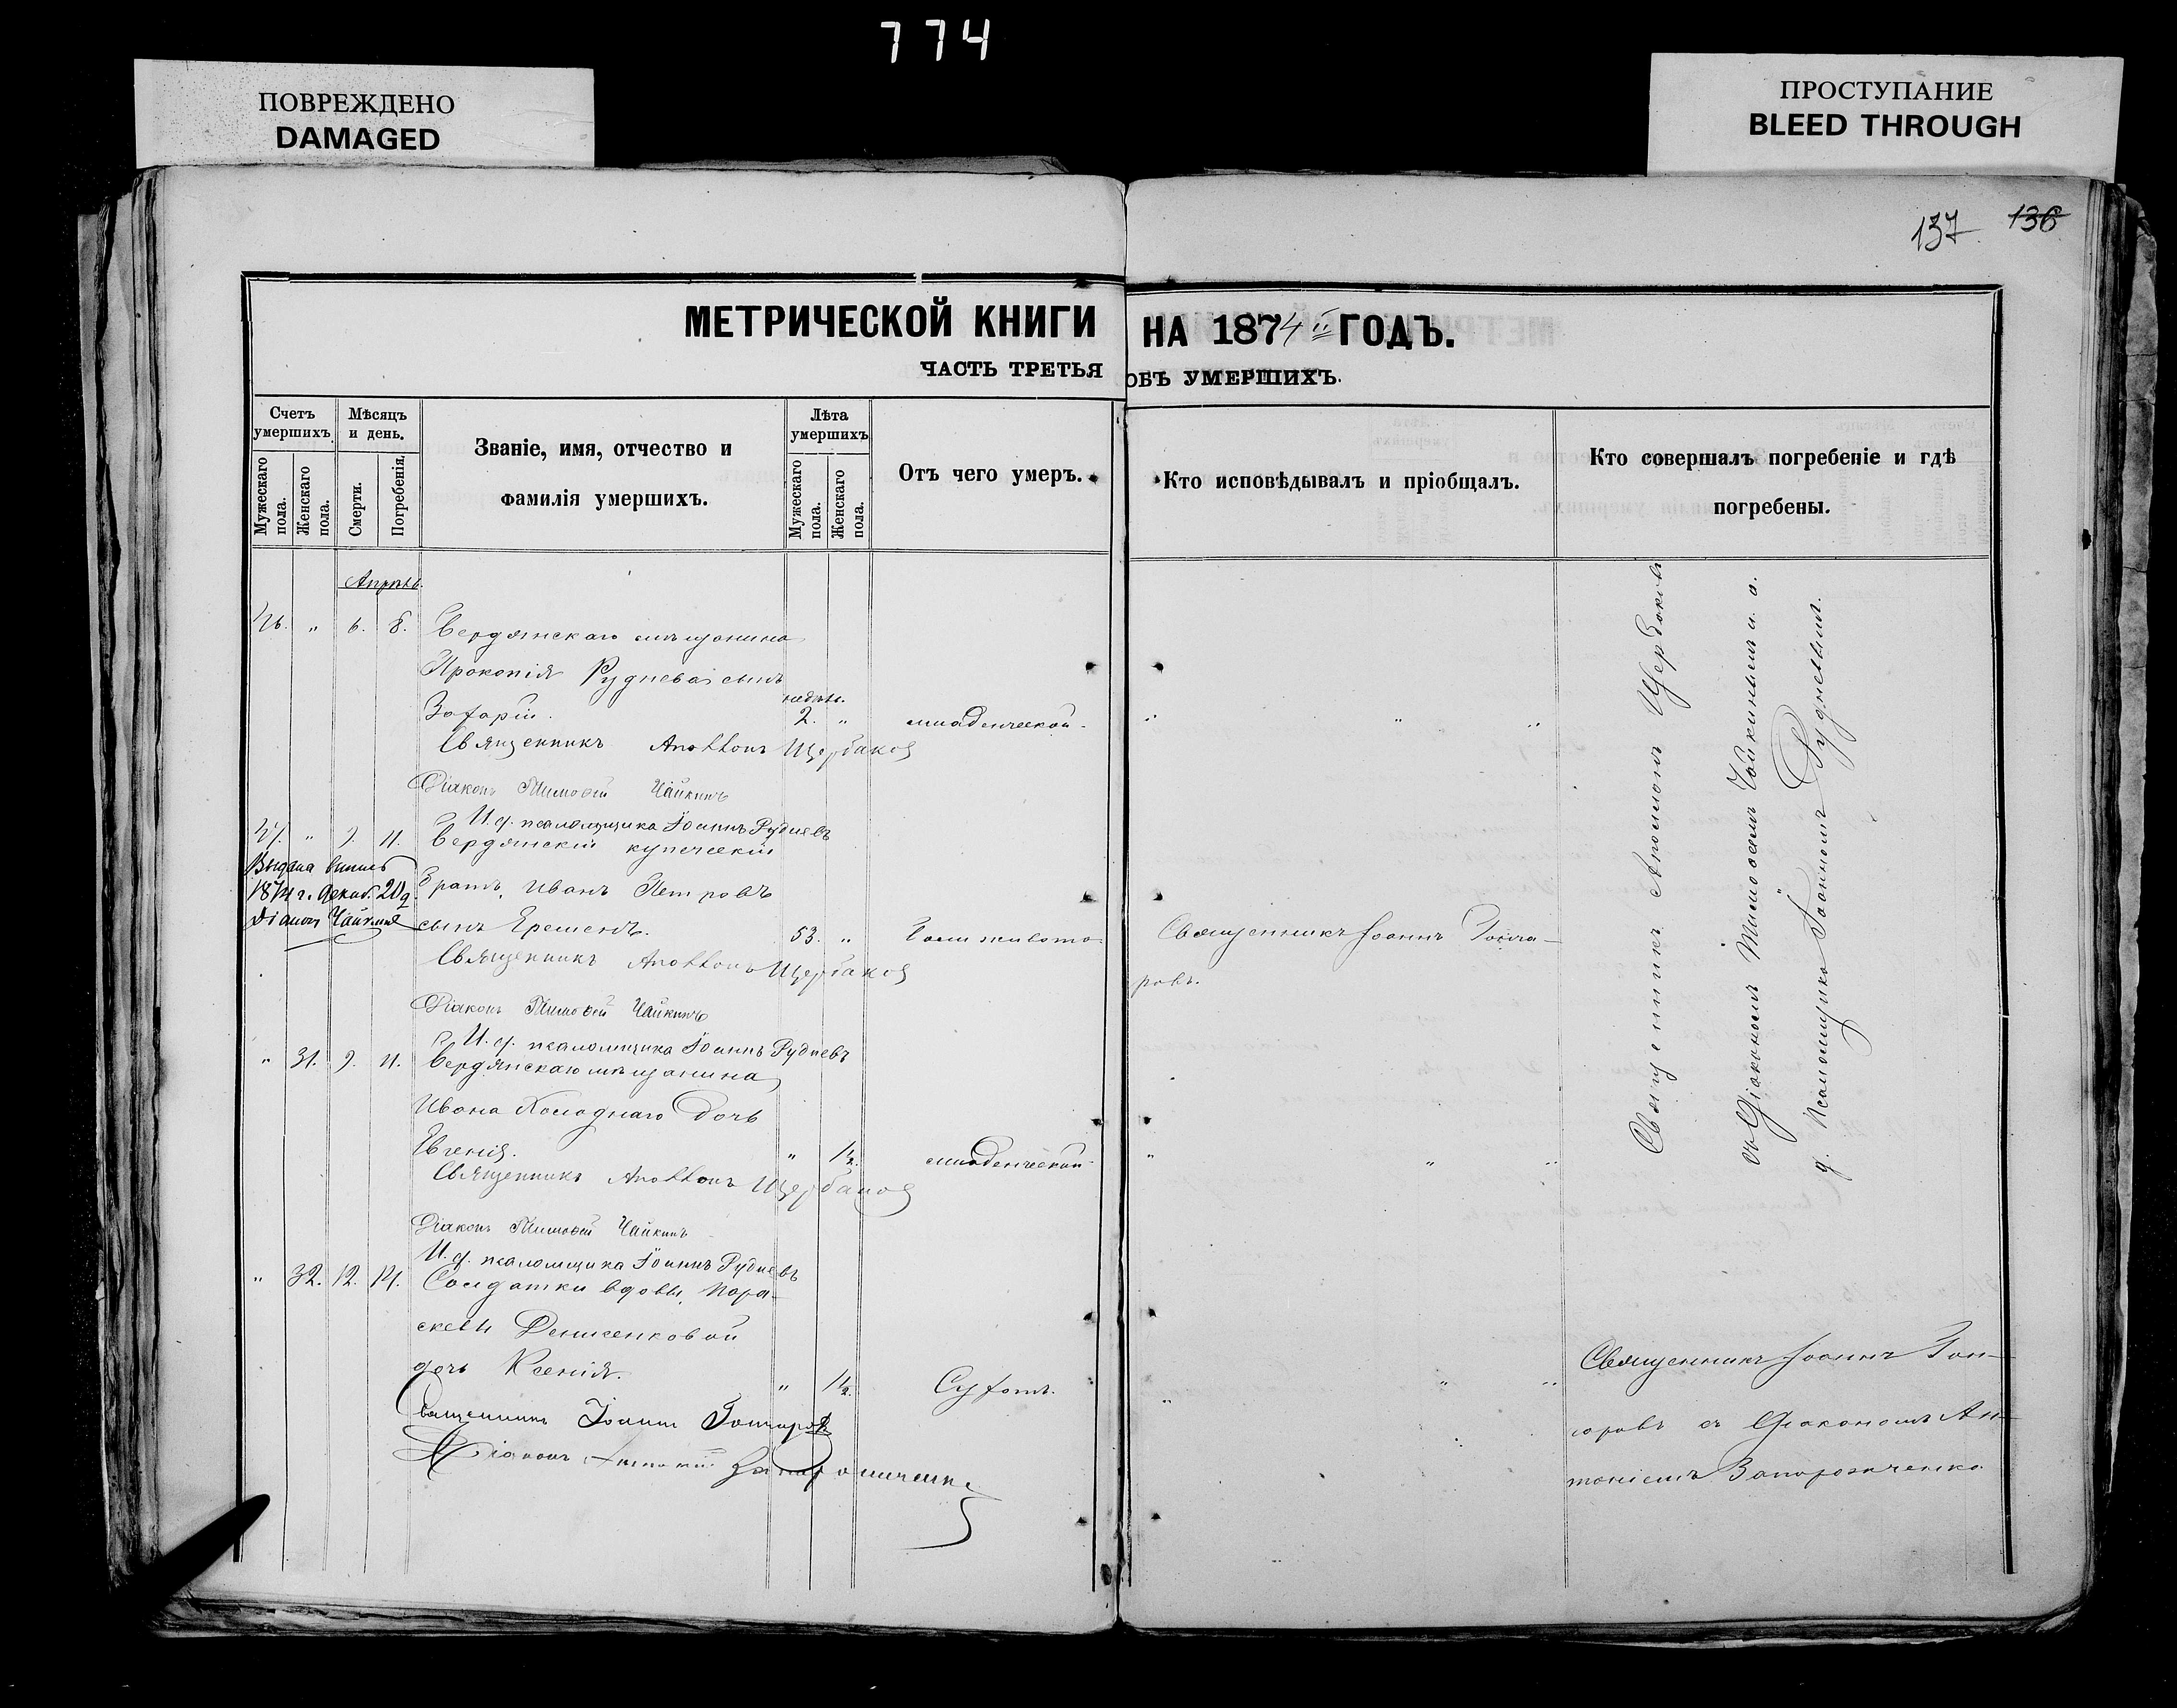 774
ПОВРЕЖДЕНО
DAMAGED
ПРОСТУПАНИЕ
BLEED THROUGH
137. 136
МЕТРИЧЕСКОЙ КНИГИ НА 1874 ГОДЪ.
ЧАСТЬ ТРЕТЬЯ ОБЪ УМЕРШИХЪ.
Счетъ умершихъ
Мужескаго пола.
Женскаго пола.
Мѣсяцъ и день.
Смерти.
Погребенія.
Званіе, имя, отчество и
фамилія умершихъ.
Лѣта умершихъ
Мужескаго пола.
Женскаго пола.
Отъ чего умеръ.
Кто исповѣдывалъ и пріобщалъ.
Кто совершалъ погребеніе и гдѣ
погребены.
Апрѣль.
" 6. 8. Бердянскаго мѣщанина
Прокопія Руднева сынъ
недѣль.
Захарій. 2. " младенческой " " "
Священникъ Аполлонъ Щербаковъ
Діаконъ Тимоѳей Чайкинъ
И. д. псаломщика Іоаннъ Рудневъ
" 9. 11. Бердянскій купеческій
Выдана выпись
1874 г. Декаб. 20 д.
Діаконъ Чайкинъ
братъ, Иванъ Петровъ
сынъ Еременъ. 53. " боли живота Священникъ Іоаннъ Гонча-
ровъ.
Священникъ Аполлонъ Щербаковъ
Діаконъ Тимоѳей Чайкинъ
И. д. псаломщика Іоаннъ Рудневъ
" 31. 9. 11. Бердянскаго мѣщанина
Ивана Холоднаго дочь
Евгенія. " 1½. младенческой " " "
Священникъ Аполлонъ Щербаковъ
Діаконъ Тимоѳей Чайкинъ
И. д. псаломщика Іоаннъ Рудневъ
" 32. 12. 14. Солдатки вдовы, Пара-
скевы Денисенковой
дочь Ксенія. " 1½. Сухоты. " " "
Священникъ Іоаннъ Гончаровъ
Діаконъ Антоній Запорожченко
Священникъ Аполлонъ Щербаковъ
съ Діакономъ Тимоѳеемъ Чайкинымъ и и.
д. Псаломщика Іоанномъ Рудневымъ.
Священникъ Іоаннъ Гон-
чаровъ съ Діакономъ Ан-
тоніемъ Запорожченко